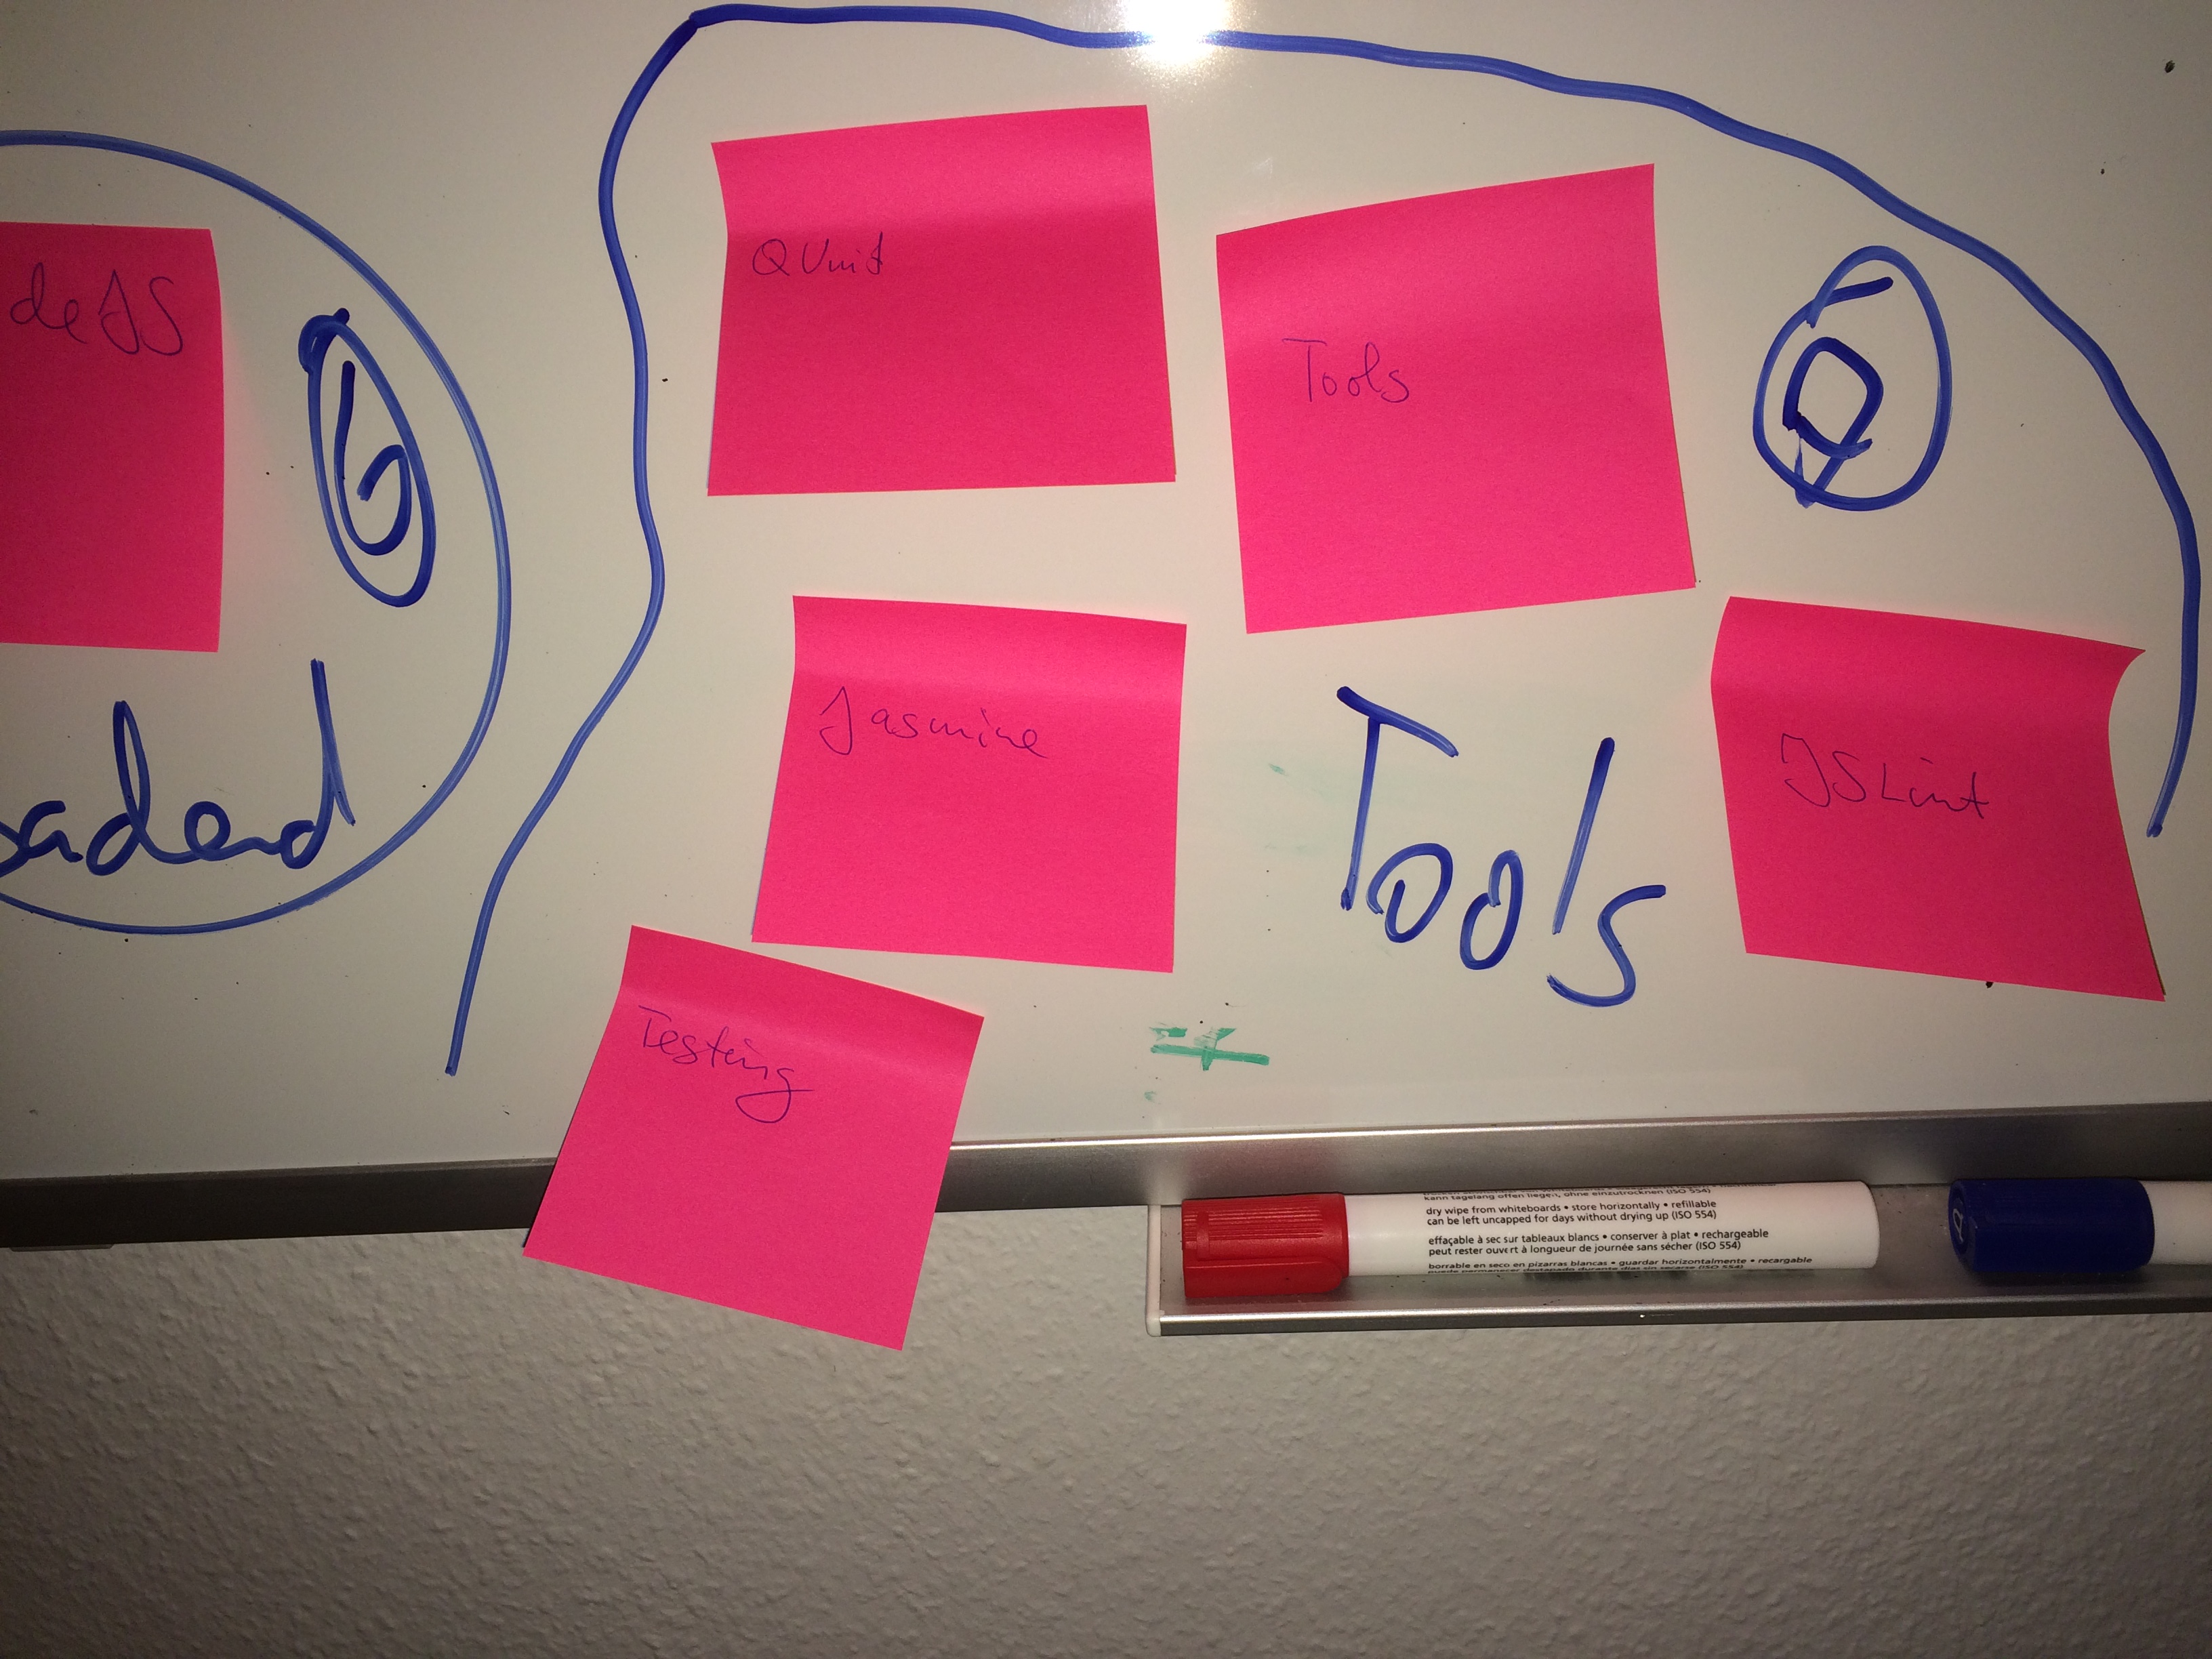 deJS
6
QUnit
Tools
Jasmine
Tools
JSLint
Testing
kann tagelang offen liegen, ohne einzutrocknen (ISO 554)
dry wipe from whiteboards • store horizontally • refillable
can be left uncapped for days without drying up (ISO 554)
effaçable à sec sur tableaux blancs • conserver à plat • rechargeable
peut rester ouvert à longueur de journée sans sécher (ISO 554)
borrable en seco en pizarras blancas • guardar horizontalmente • recargable
puede permanecer destapado durante días sin secarse (ISO 554)